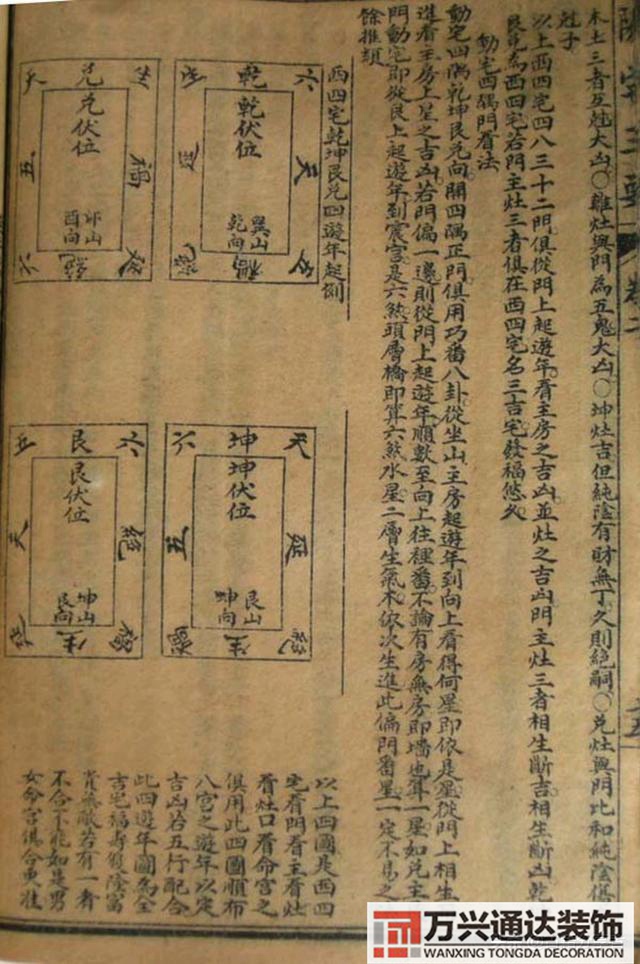 陽宅三要 卷二
木土三者互尅大凶○離灶與門為五鬼大凶○坤灶吉但純陰有財無丁久則絕嗣○兌灶與門比和純陰俱
尅子
以上西四宅四八三十二門俱從門上起遊年看主房之吉凶並灶之吉凶門主灶三者相生斷吉相生斷凶乾
艮兌為西四宅若門主灶三者俱在西四宅名三吉宅發福悠久
動宅四隅門看法
動宅四隅乾坤艮兌向開四隅正門俱用巧番八卦從坐山主房起遊年到向上看得何星即依是星從門上相生
進看主房上星之吉凶若門偏一邊則從門上起遊年順數至向上往裡番不論有房無房即墻也算一星如兌主
門動宅即從艮上起遊年到震宮是六煞頭層橋即算六煞水星二層生氣木依次生進此偏門番星一定不易之
餘推類
西四宅乾坤艮兌四遊年起例
六 乾 五
天 乾伏位 延
巽山
乾向
生 禍 絕
生 兌 天
禍 兌伏位 五
卯山
酉向
延 絕 六
天 坤 六
延 坤伏位 五
艮山
坤向
絕 生 禍
六 艮 五
絕 艮伏位 天
坤山
艮向
禍 生 延
以上四圖是西四
宅看門看主看灶
看灶口看命宮之
俱用此四圖順布
八宮之遊年以定
吉凶若五行配合
此四遊年圖為全
吉宅福壽雙陰富
貴無敵若有一者
不合不能如是男
女命宮俱合更准
万兴通达装饰
WANXING TONGDA DECORATION